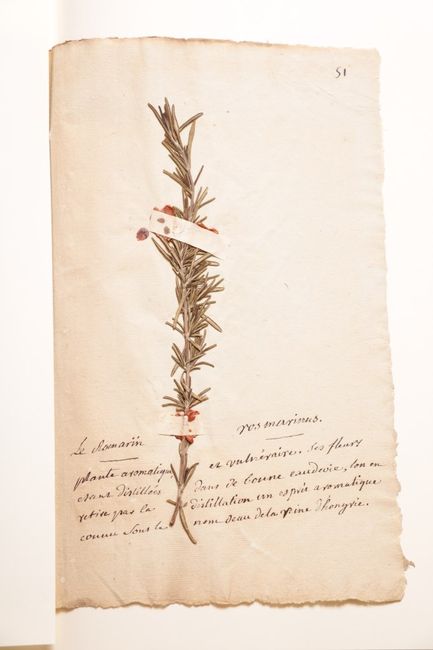 51
Le Romarin rosmarinus.
plante aromatique et vulnéraire. ses fleurs
etant distillées dans de bonne eaudevie, lon en
retire par la distillation un esprit aromatique
connu sous le nom deau dela reine dhongrie.